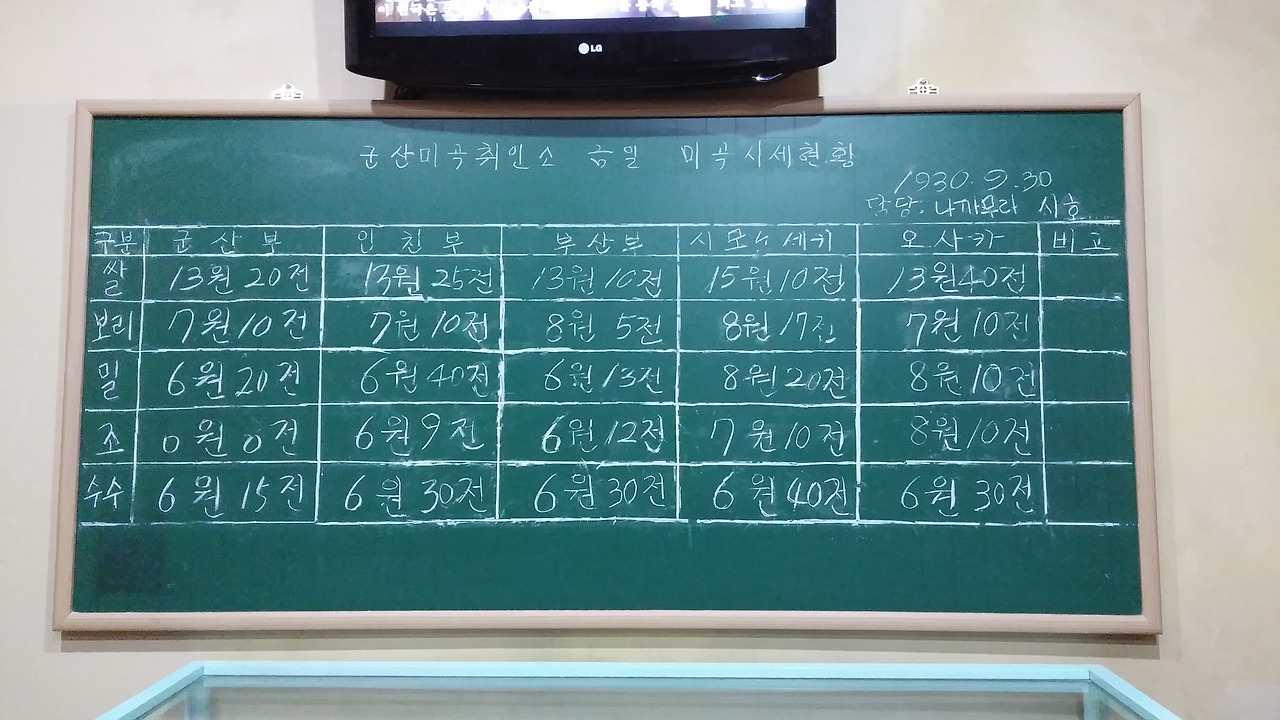 LG
군산미곡취인소 금일 미곡시세현황
1930.9.30
담당. 나까무라 시호
구분 군산부 인천부 부산부 시모노세키 오사카 비고
쌀 13원20전 13원25전 13원10전 15원10전 13원40전
보리 7원10전 7원10전 8원5전 8원17전 7원10전
밀 6원20전 6원40전 6원13전 8원20전 8원10전
조 0원0전 6원9전 6원12전 7원10전 8원10전
수수 6원15전 6원30전 6원30전 6원40전 6원30전